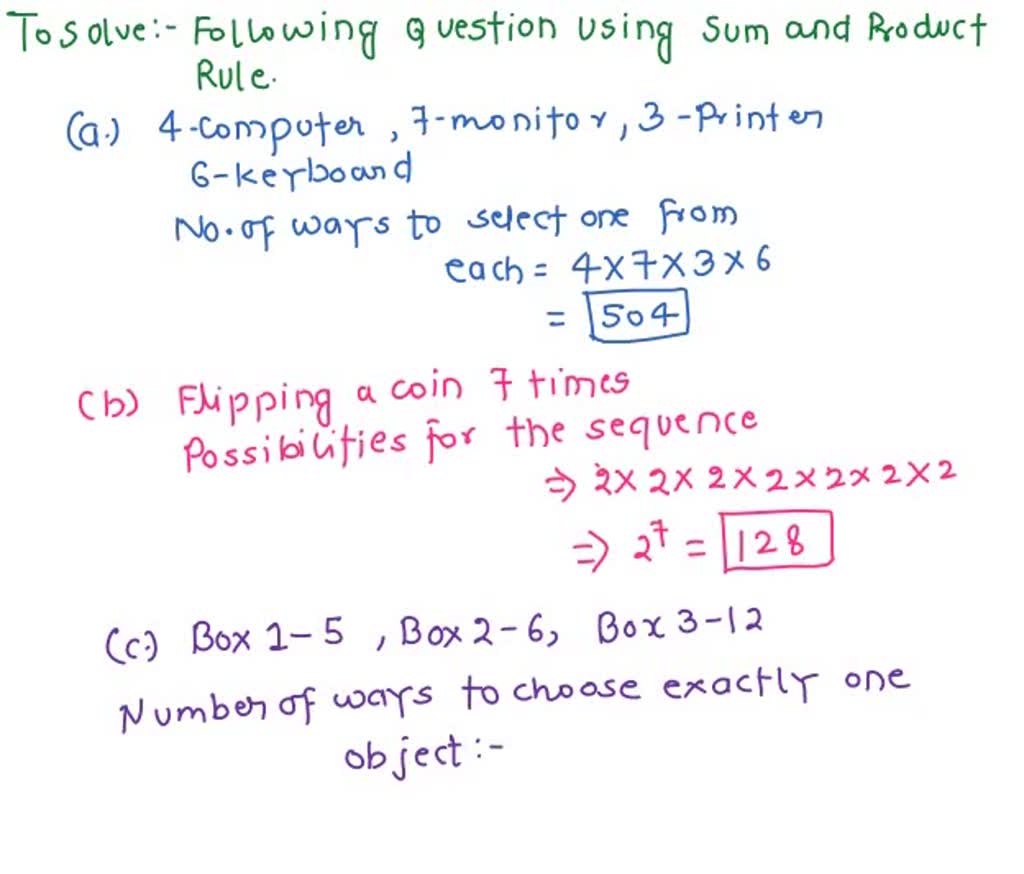 To solve:- Following Question using Sum and Product
Rule.
(a.) 4-computer, 7-monitor, 3-Printer
6-keyboard
No. of ways to select one from
each = 4×7×3×6
= 504
(b) Flipping a coin 7 times
Possibilities for the sequence
⇒ 2×2×2×2×2×2×2
⇒ 2⁷ = 128
(c.) Box 1-5, Box 2-6, Box 3-12
Number of ways to choose exactly one
object:-